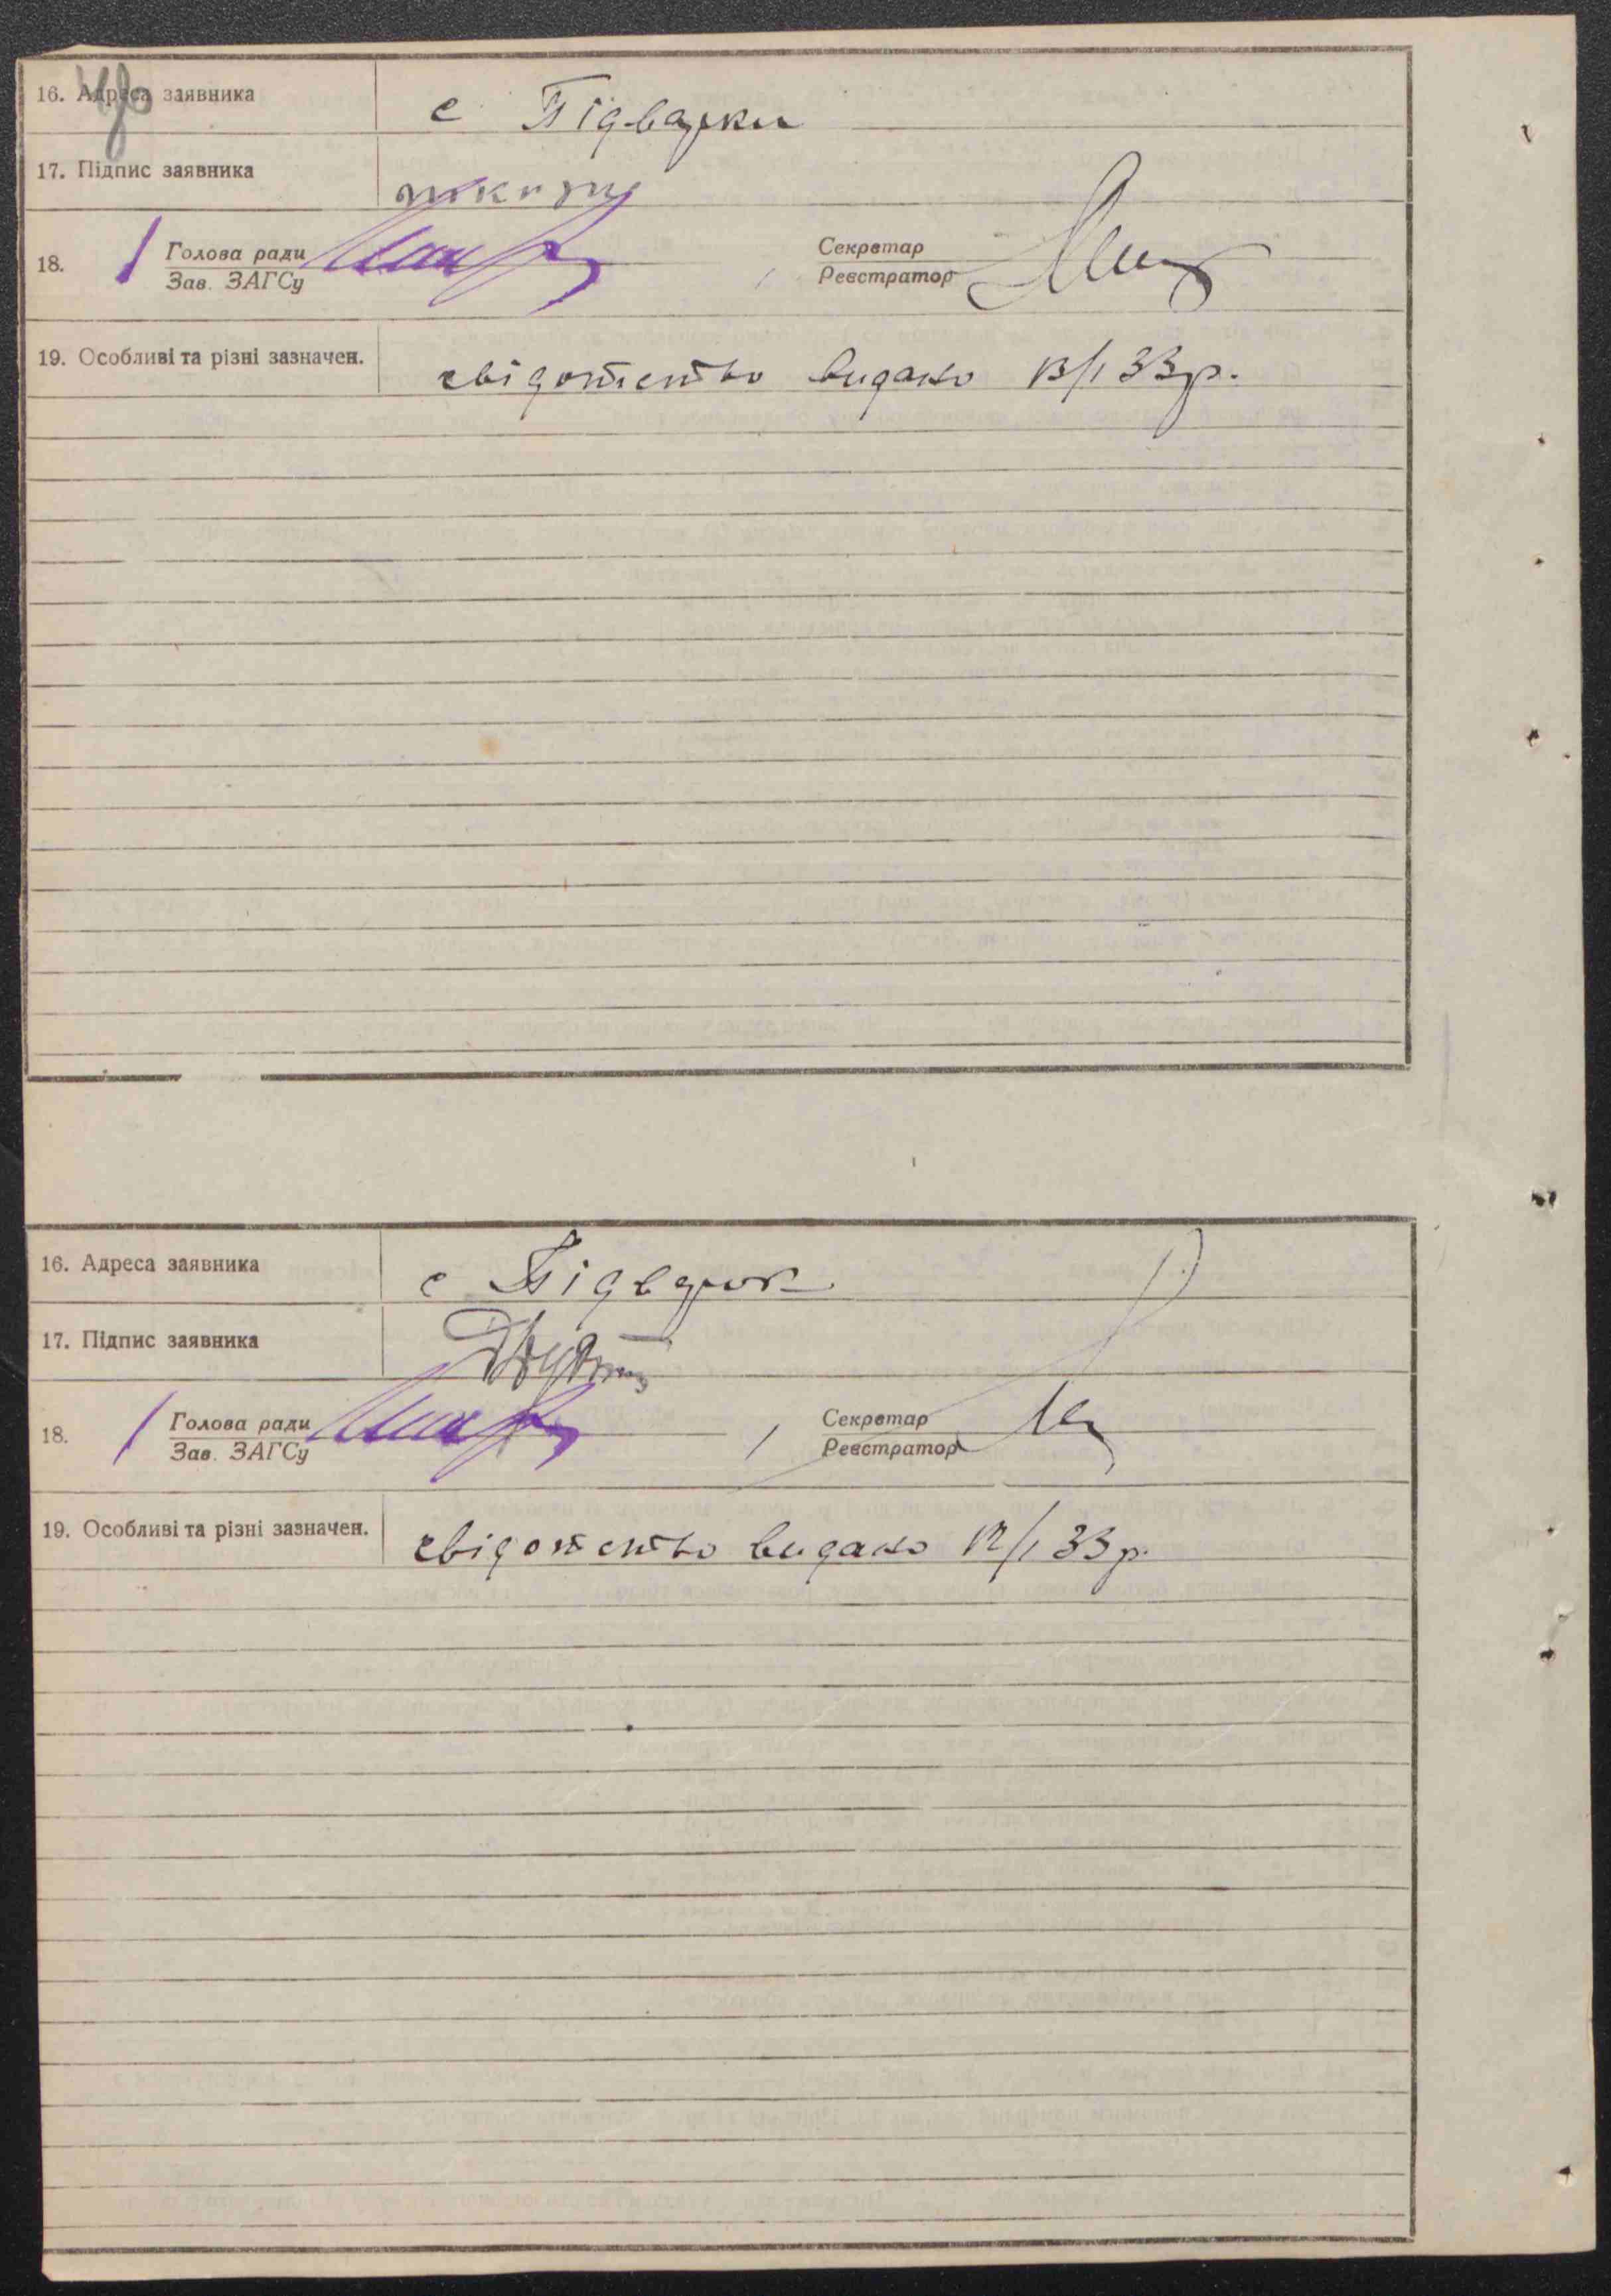 16. Адреса заявника с Підварки
17. Підпис заявника
18. Голова ради Секретар
Зав. ЗАГСу Реєстратор
19. Особливі та різні зазначен. свідотство видано 13/I 33 р.
16. Адреса заявника с Підварк
17. Підпис заявника
18. Голова ради Секретар
Зав. ЗАГСу Реєстратор
19. Особливі та різні зазначен. свідотство видано 12/I 33 р.